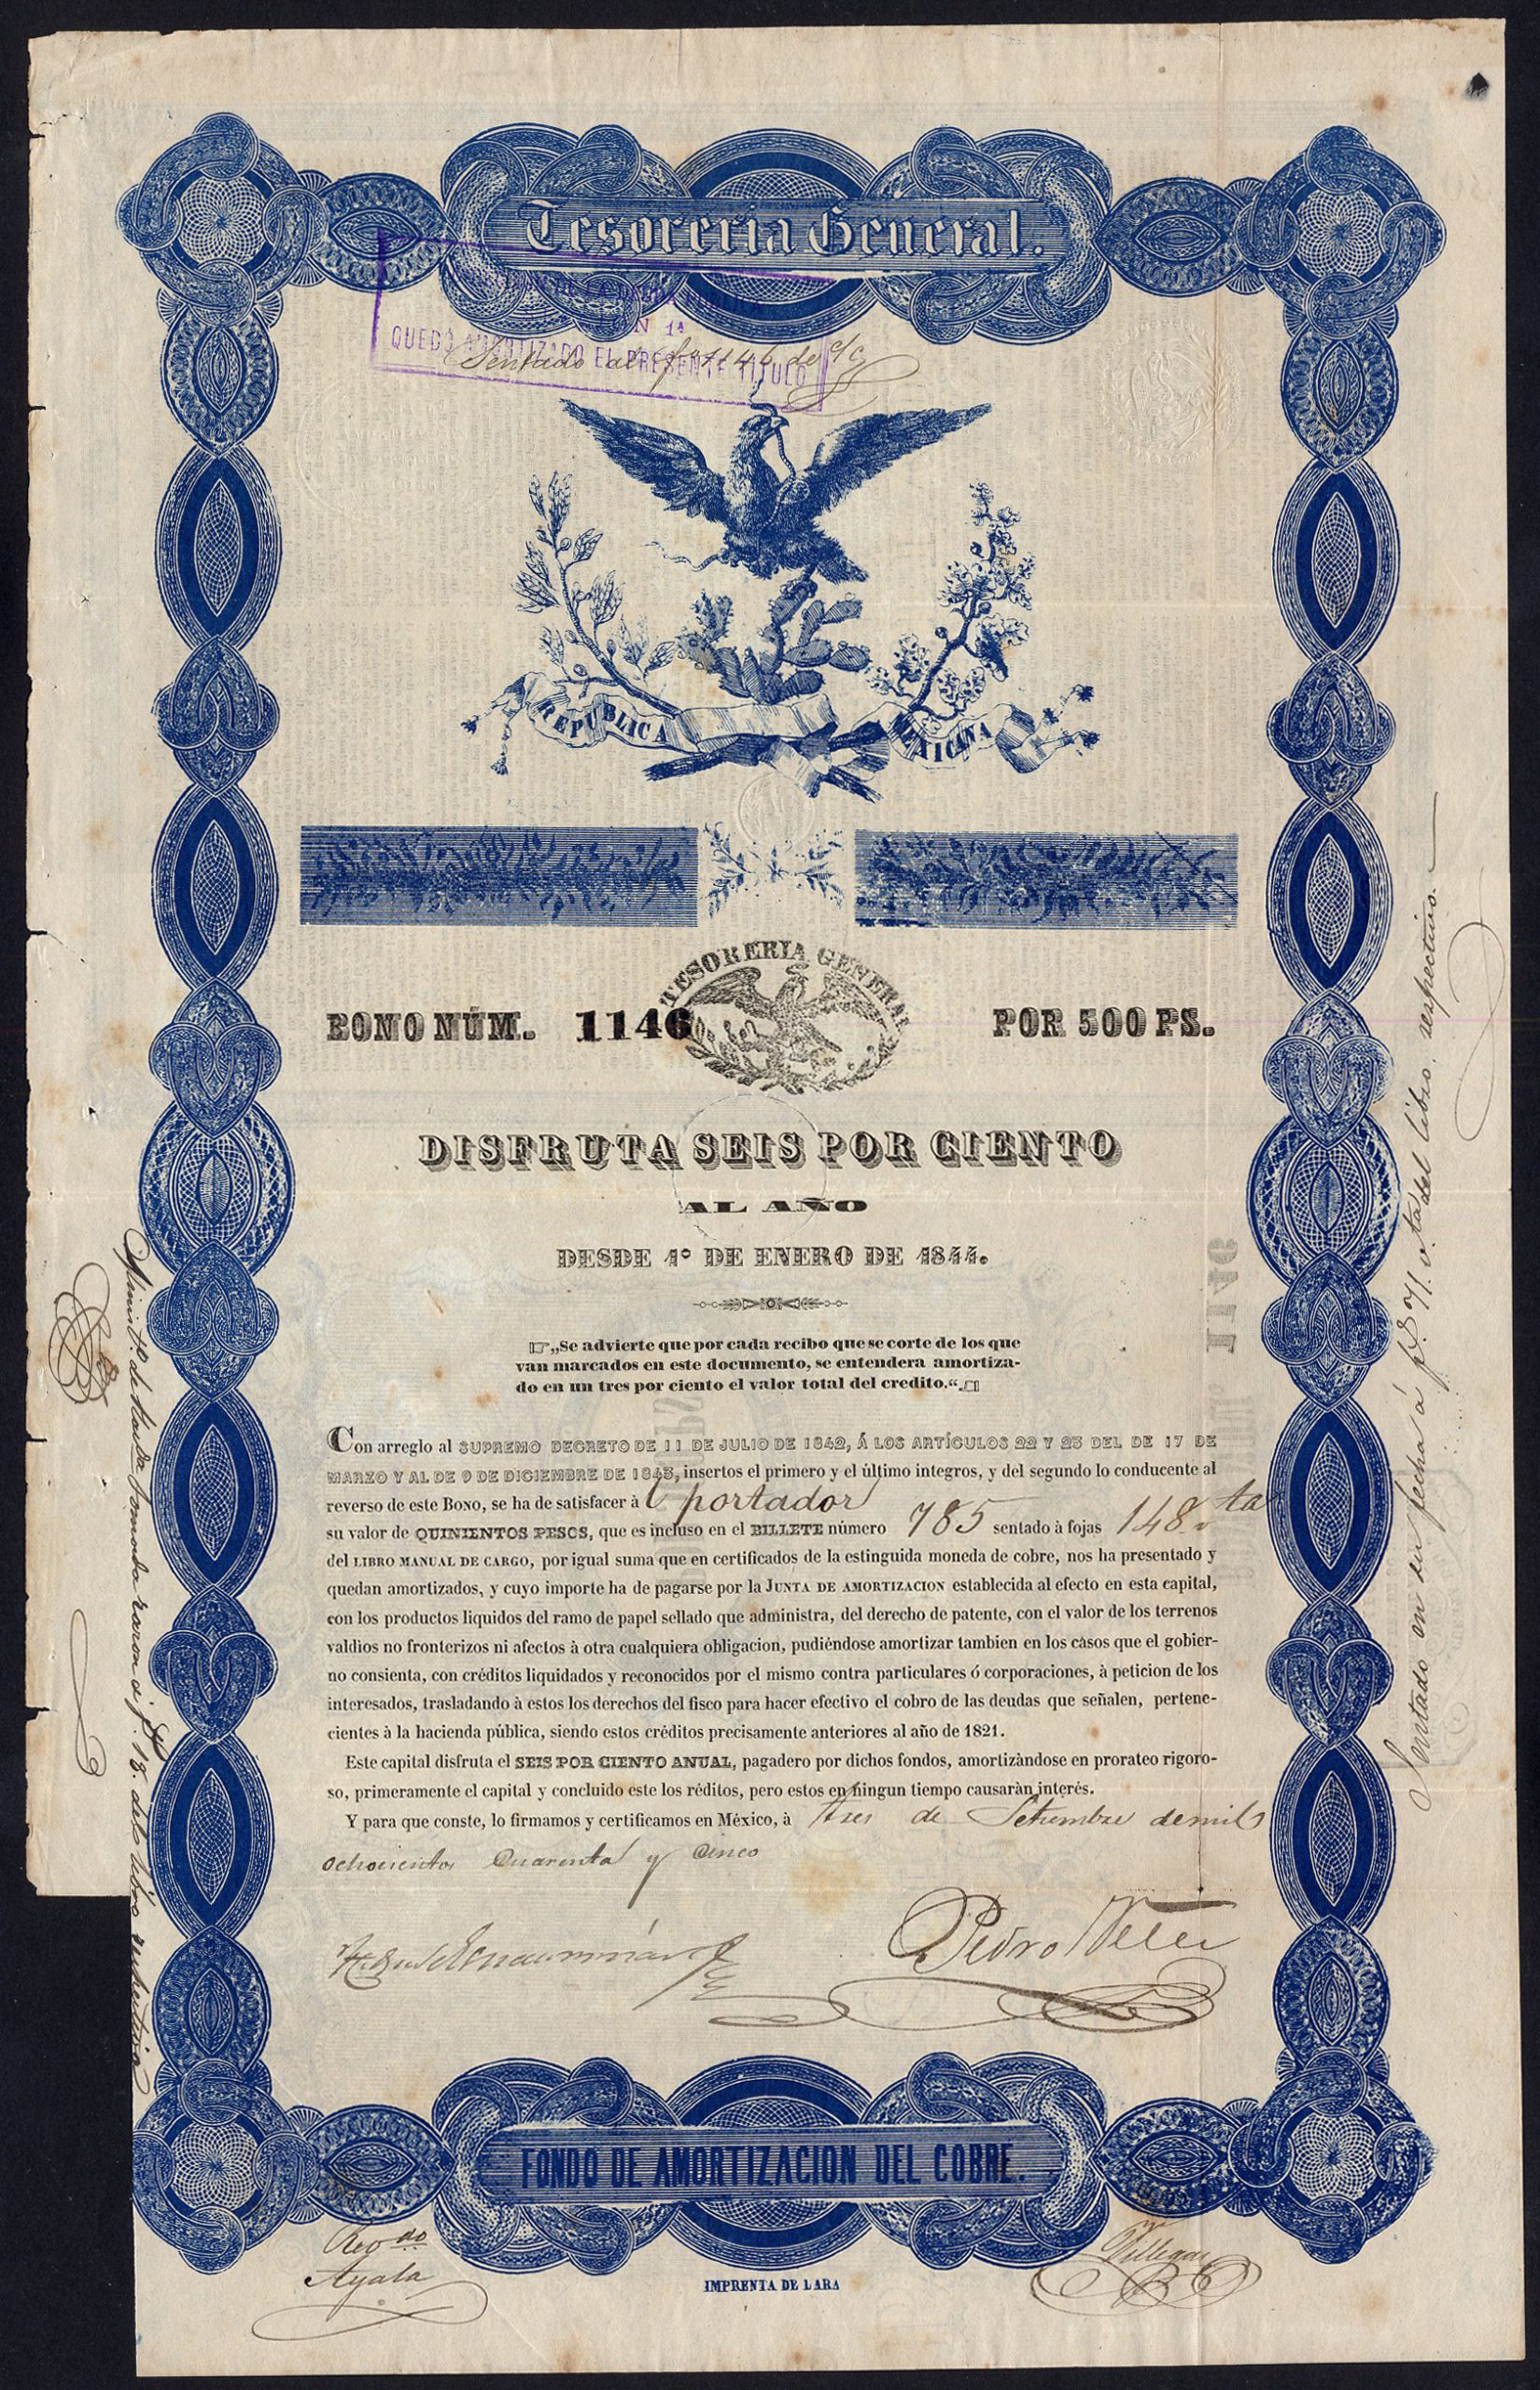 Tesoreria General.
QUEDÓ AMORTIZADO EL PRESENTE TITULO
Sentado
REPUBLICA MEXICANA
TESORERIA GENERAL
BONO NÚM. 1146 POR 500 PS.
DISFRUTA SEIS POR CIENTO
AL AÑO
DESDE 1º DE ENERO DE 1844.
☞„Se advierte que por cada recibo que se corte de los que
van marcados en este documento, se entendera amortiza-
do en un tres por ciento el valor total del credito.“
Con arreglo al SUPREMO DECRETO DE 11 DE JULIO DE 1842, Á LOS ARTÍCULOS 22 Y 23 DEL DE 17 DE
MARZO Y AL DE 9 DE DICIEMBRE DE 1843, insertos el primero y el último integros, y del segundo lo conducente al
reverso de este BONO, se ha de satisfacer à l portador
su valor de QUINIENTOS PESOS, que es incluso en el BILLETE número 785 sentado à fojas 148 vta
del LIBRO MANUAL DE CARGO, por igual suma que en certificados de la estinguida moneda de cobre, nos ha presentado y
quedan amortizados, y cuyo importe ha de pagarse por la JUNTA DE AMORTIZACION establecida al efecto en esta capital,
con los productos liquidos del ramo de papel sellado que administra, del derecho de patente, con el valor de los terrenos
valdìos no fronterizos ni afectos à otra cualquiera obligacion, pudiéndose amortizar tambien en los càsos que el gobier-
no consienta, con créditos liquidados y reconocidos por el mismo contra particulares ó corporaciones, à peticion de los
interesados, trasladando à estos los derechos del fisco para hacer efectivo el cobro de las deudas que señalen, pertene-
cientes à la hacienda pública, siendo estos créditos precisamente anteriores al año de 1821.
Este capital disfruta el SEIS POR CIENTO ANUAL, pagadero por dichos fondos, amortizàndose en prorateo rigoro-
so, primeramente el capital y concluido este los réditos, pero estos en ningun tiempo causaràn interés.
Y para que conste, lo firmamos y certificamos en México, à tres de Setiembre de mil
ochocientos Cuarenta y Cinco
Pedro Velez
FONDO DE AMORTIZACION DEL COBRE.
Ayala
Villegas
IMPRENTA DE LARA
Sentado en su fecha á fs. 71 vta del libro respectivo.
tomada razon á fs. 18. del libro respectivo
1146